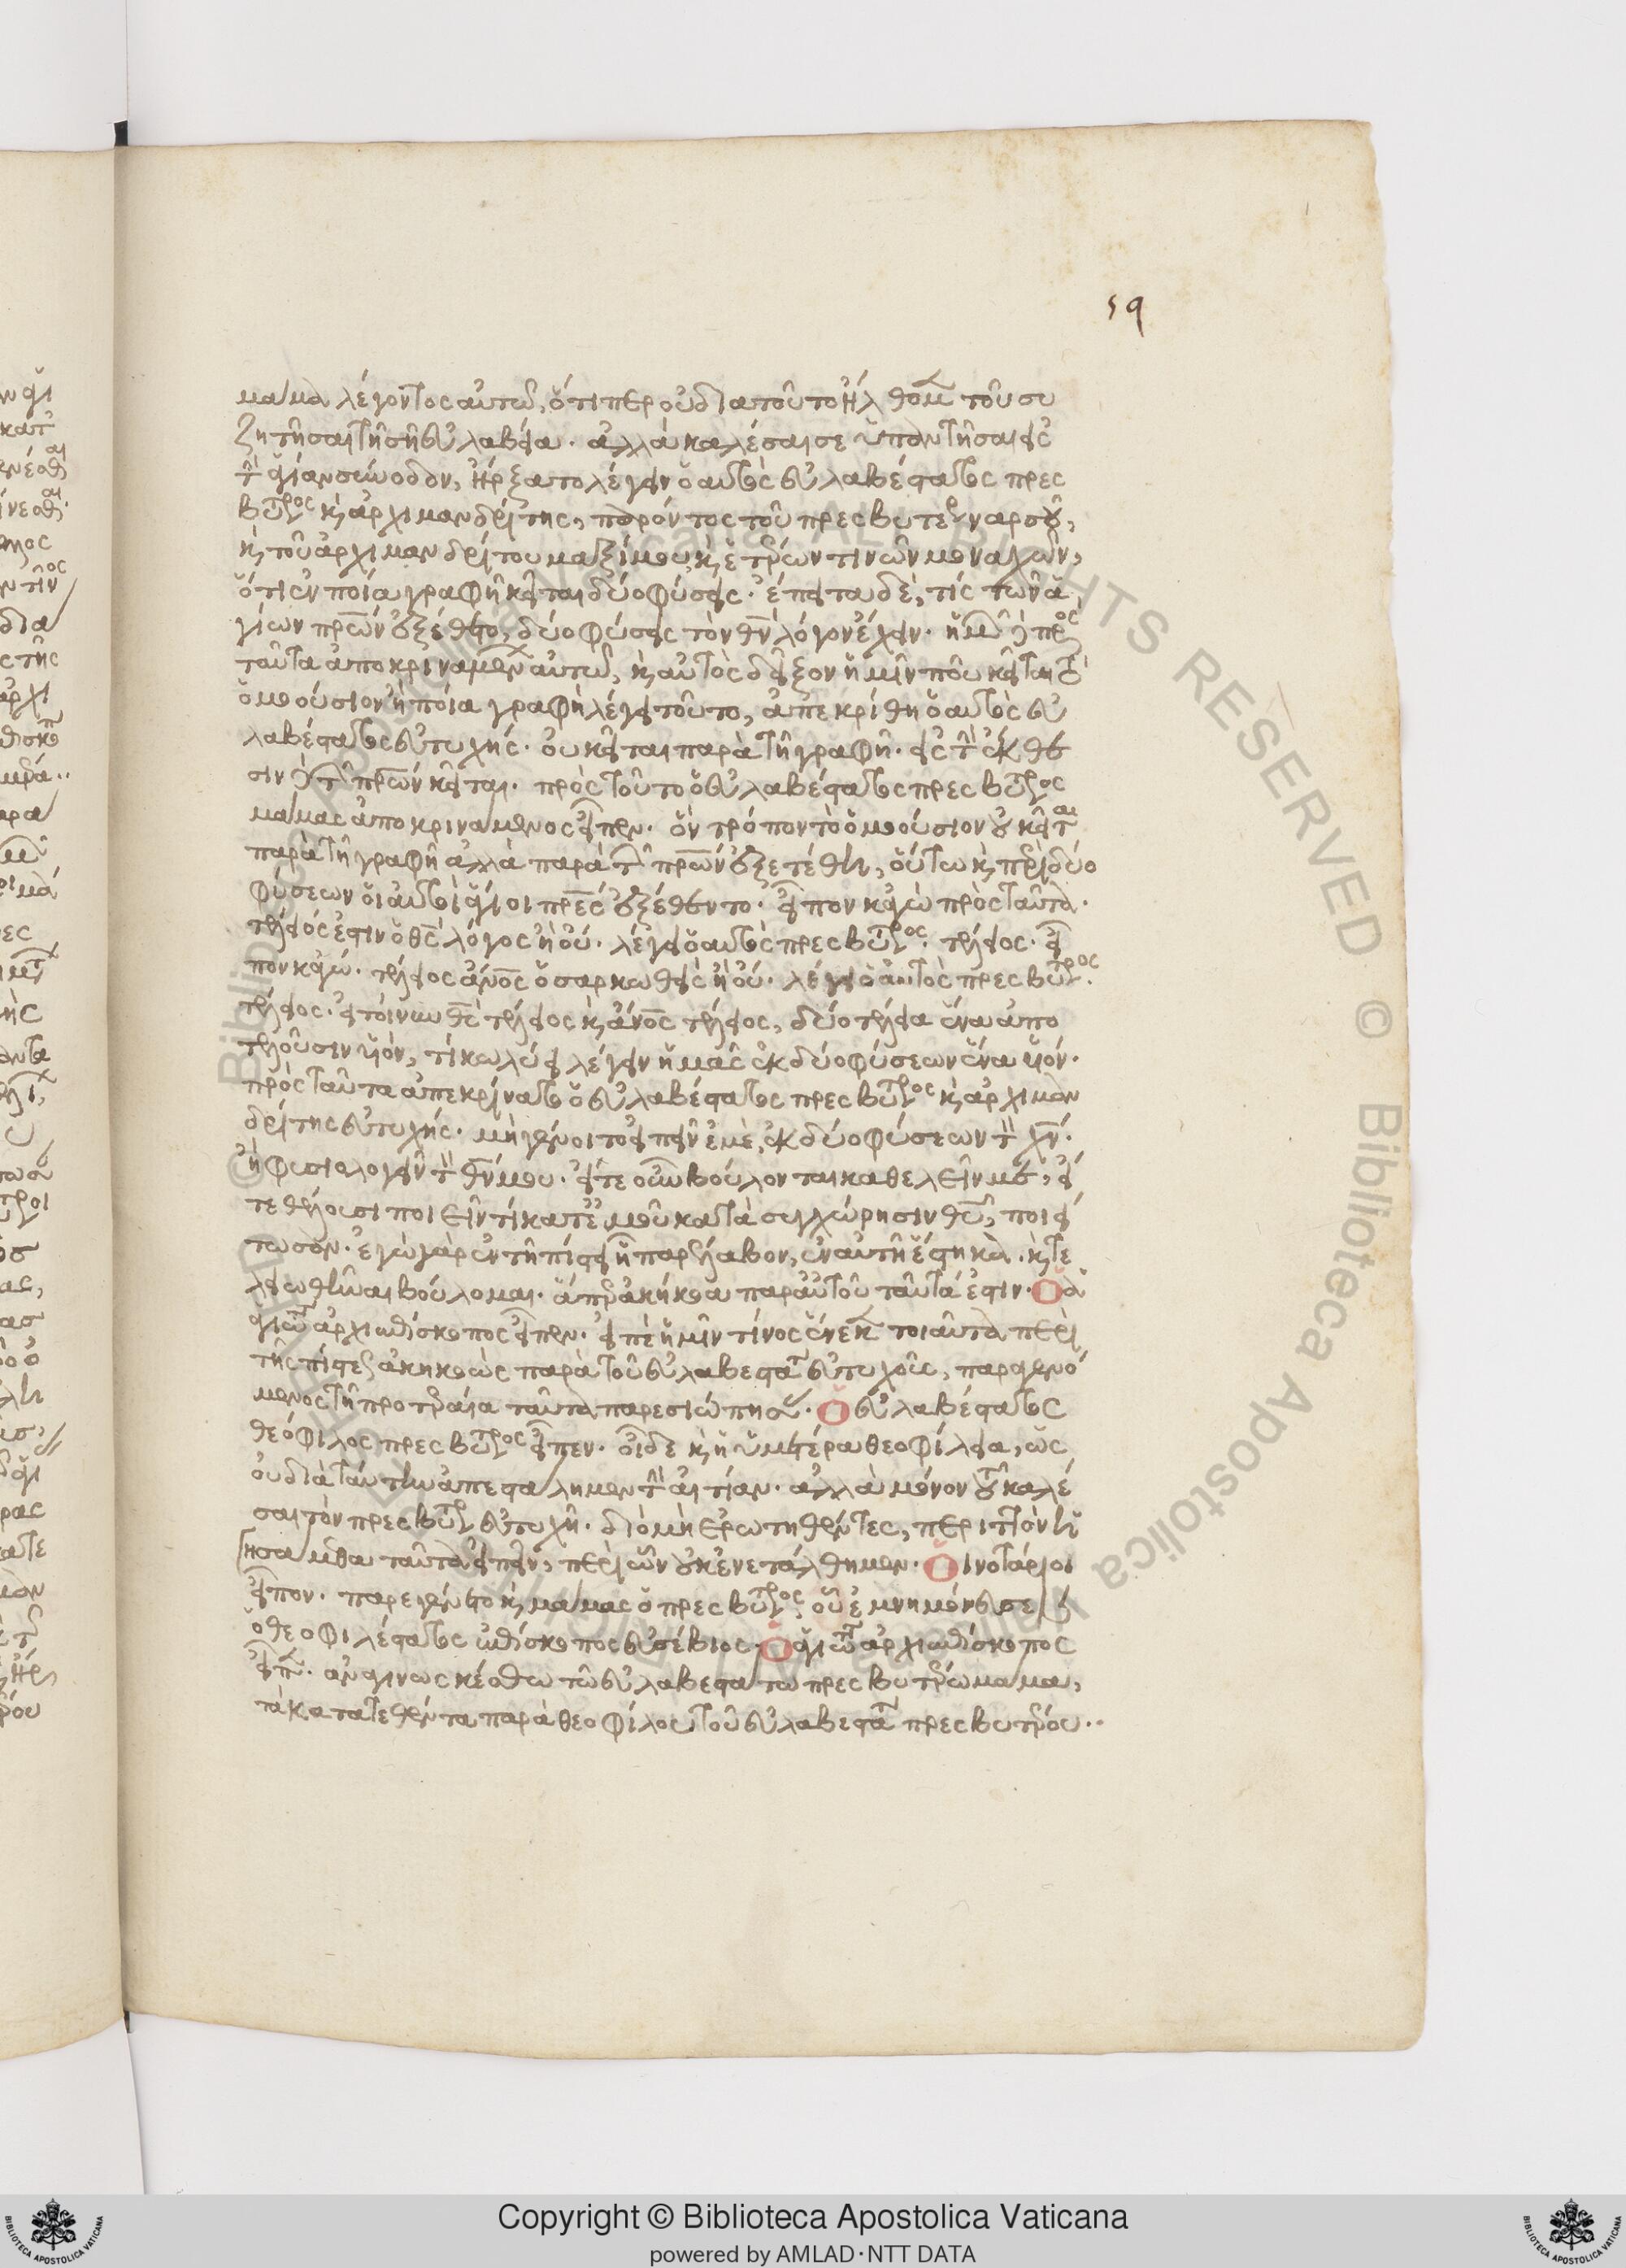 59
μαμα λέγοντος αὐτῶ, ὅτιπερ οὐ διατοῦτο ἤλθομεν τοῦ συ
ζητῆσαι τῆ σῆ εὐλαβεία. ἀλλὰ καλέσαι σε ὑπαντῆσαι εἰς
τὴν ἁγίαν σύνοδον, ἤρξατο λέγειν ὁ αὐτὸς εὐλαβέστατος πρεσ
βύτερος καὶ ἀρχιμανδρίτης, παρόντος τοῦ πρεσβυτέρου ναρσοῦ,
καὶ τοῦ ἀρχιμανδρίτου μαξίμου καὶ ἑτέρων τινῶν μοναχῶν,
ὅτι ἐν ποία γραφῆ κεῖται δύο φύσεις. ἔπειτα δὲ, τίς τῶν ἁ
γίων πρων ἐξέθετο, δύο φύσεις τὸν θν λόγον ἔχειν. ἡμῶν πρὸς
ταῦτα ἀποκριναμένων αὐτῶ, καὶ αὐτὸς δεῖξον ἡμῖν ποῦ κεῖται τὸ
ὁμοούσιον ἢ ποία γραφὴ λέγει τοῦτο, ἀπεκρίθη ὁ αὐτὸς εὐ
λαβέστατος εὐτυχής. οὐ κεῖται παρὰ τῆ γραφῆ. εἰς τὴν ἔκθε
σιν τῶν πρων κεῖται. πρὸς τοῦτο ὁ εὐλαβέστατος πρεσβύτερος
μάμας ἀποκρινάμενος εἶπεν. ὃν τρόπον τὸ ὁμοούσιον οὐ κεῖται
παρὰ τῆ γραφῆ ἀλλὰ παρὰ τῶν πρων ἐξετέθη, οὕτω καὶ περὶ δύο
φύσεων οἱ αὐτοὶ ἅγιοι πρες ἐξέθεντο. εἶπον κἀγὼ πρὸς ταῦτα.
τέλειός ἐστιν ὁ θς λόγος ἢ οὔ. λέγει ὁ αὐτὸς πρεσβύτερος. τέλειος. εἶ
πον κἀγώ. τέλειος ἄνος ὁ σαρκωθεὶς ἢ οὔ. λέγει ὁ αὐτὸς πρεσβύτερος.
τέλειος. εἰ τοίνυν θς τέλειος καὶ ἄνος τέλειος, δύο τέλεια ἕνα ἀπο
τελοῦσιν υἱόν, τί κωλύει λέγειν ἡμᾶς ἐκ δύο φύσεων ἕνα υἱόν.
πρὸς ταῦτα ἀπεκρίνατο ὁ εὐλαβέστατος πρεσβύτερος καὶ ἀρχιμαν
δρίτης εὐτυχής. μὴ γένοιτο εἰπεῖν ἐμὲ, ἐκ δύο φύσεων τὸν χν.
ἢ φυσιολογεῖν τὸν θν μου. εἴτε οὖν βούλονται καθελεῖν με, εἴ
τε θέλουσι ποιεῖν τί κατ' ἐμοῦ κατὰ συγχώρησιν θυ, ποιεί
τωσαν. ἐγὼ γὰρ ἐν τῆ πίστει ἣ παρέλαβον, ἐν αὐτῆ ἕστηκα. καὶ τε
λειωθῆναι βούλομαι. ἅπερ ἀκήκοα παρ' αὐτοῦ ταῦτά ἐστιν. ὁ ἁ
γιώτατος ἀρχιεπίσκοπος εἶπεν. εἰπὲ ἡμῖν τίνος ἕνεκεν τοιαῦτα περὶ
τῆς πίστεως ἀκηκοὼς παρὰ τοῦ εὐλαβεστάτου εὐτυχοῦς, παραγενό
μενος τῆ προτεραία ταῦτα παρεσιώπησας. ὁ εὐλαβέστατος
θεόφιλος πρεσβύτερος εἶπεν. οἶδε καὶ ἡ ὑμετέρα θεοφίλεια, ὡς
οὐ διὰ ταύτην ἀπεστάλημεν τὴν αἰτίαν. ἀλλὰ μόνον τοῦ καλέ
σαι τὸν πρεσβύτερον εὐτυχῆ. διὸ μὴ ἐρωτηθέντες, περιττὸν ἡ
γησάμεθα ταῦτα εἰπεῖν, περὶ ὧν οὐκ ἐνετάλθημεν. οἱ νοτάριοι
εἶπον. παρεγένετο καὶ μάμας ὁ πρεσβύτερος, οὗ ἐμνημόνευσεν
ὁ θεοφιλέστατος ἐπίσκοπος εὐσέβιος. ὁ ἁγιώτατος ἀρχιεπίσκοπος
εἶπεν. ἀναγινωσκέσθω τῶ εὐλαβεστάτω πρεσβυτέρω μάμα,
τὰ κατατεθέντα παρὰ θεοφίλου τοῦ εὐλαβεστάτου πρεσβυτέρου..
Copyright © Biblioteca Apostolica Vaticana
powered by AMLAD·NTT DATA